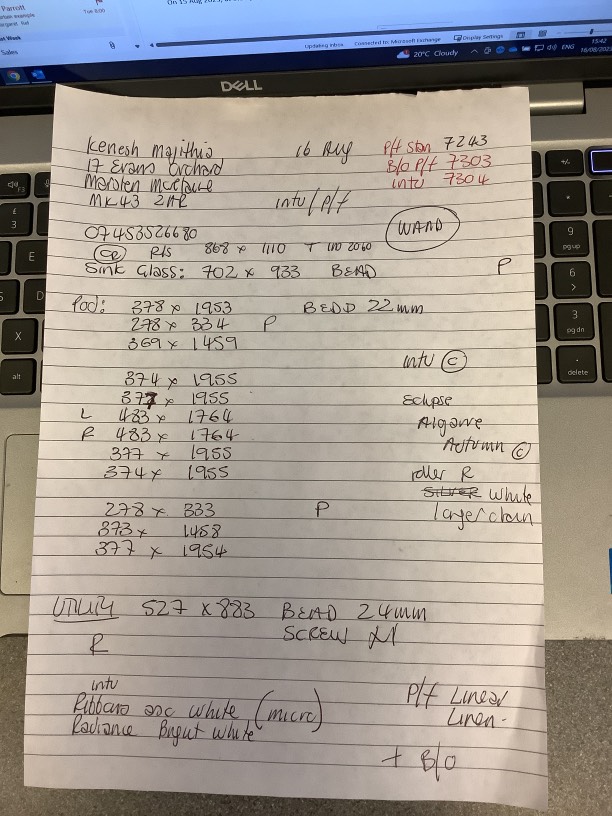 Parrott
Tue 8:00
Sales
Updating inbox. Connected to: Microsoft Exchange
Display Settings
20°C Cloudy
ENG
15:42
DELL
Kenesh Majithia
16 Aug
P/f Stan 7243
17 Evans Orchard
B/o P/f 7303
Marsten
intu 7304
MK43
intu / P/f
07453526680
WAND
R/s 868 x 1110
Sink Glass: 702 x 933 BEAD
P
Pod: 378 x 1953 BEDD 22mm
278 x 334 P
369 x 1459
intu C
374 x 1955
377 x 1955
Eclipse
L 483 x 1764
Algarve
R 483 x 1764
Autumn C
377 x 1955
374 x 1955
roller R
SILVER white
278 x 333 P
larger chain
373 x 1458
377 x 1954
UTILITY 527 x 883 BEAD 24mm
SCREW
R
intu
P/f Linear
Ribbons asc white (micro)
Linen.
Radiance Bright white
+ B/O